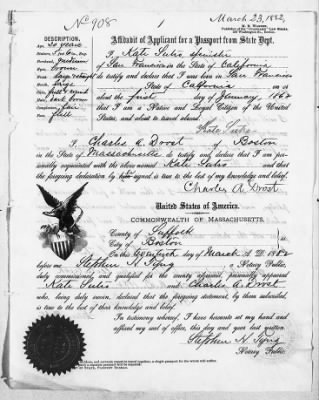 No 908
March 23, 1882,
DESCRIPTION.
Affidavit of Applicant for a Passport from State Dept.
Age, 20 years
I, Kate Sutro spinster
of San Francisco in the State of California
do testify and declare that I was born in San Francisco
in the State of California on or
about the first day of January, 1862
that I am a Native and Loyal Citizen of the United
States, and about to travel abroad.
Kate Sutro
I, Charles A. Drost of Boston
in the State of Massachusetts do testify and declare that I am per-
sonally acquainted with the above named Kate Sutro and that
the foregoing declaration by her signed is true to the best of my knowledge and belief.
Charles A Drost
United States of America.
COMMONWEALTH OF MASSACHUSETTS.
County of Suffolk
City of Boston
On this day of March A. D. 1882
before me Stephen H. Notary Public,
duly commissioned, and qualified for the county aforesaid, personally appeared
Kate Sutro and Charles A. Drost
who, being duly sworn, declared that the foregoing statement, by them subscribed,
is true to the best of their knowledge and belief.
In testimony whereof, I have hereunto set my hand and
affixed my seal of office, this day and year last written.
Stephen H.
Notary Public